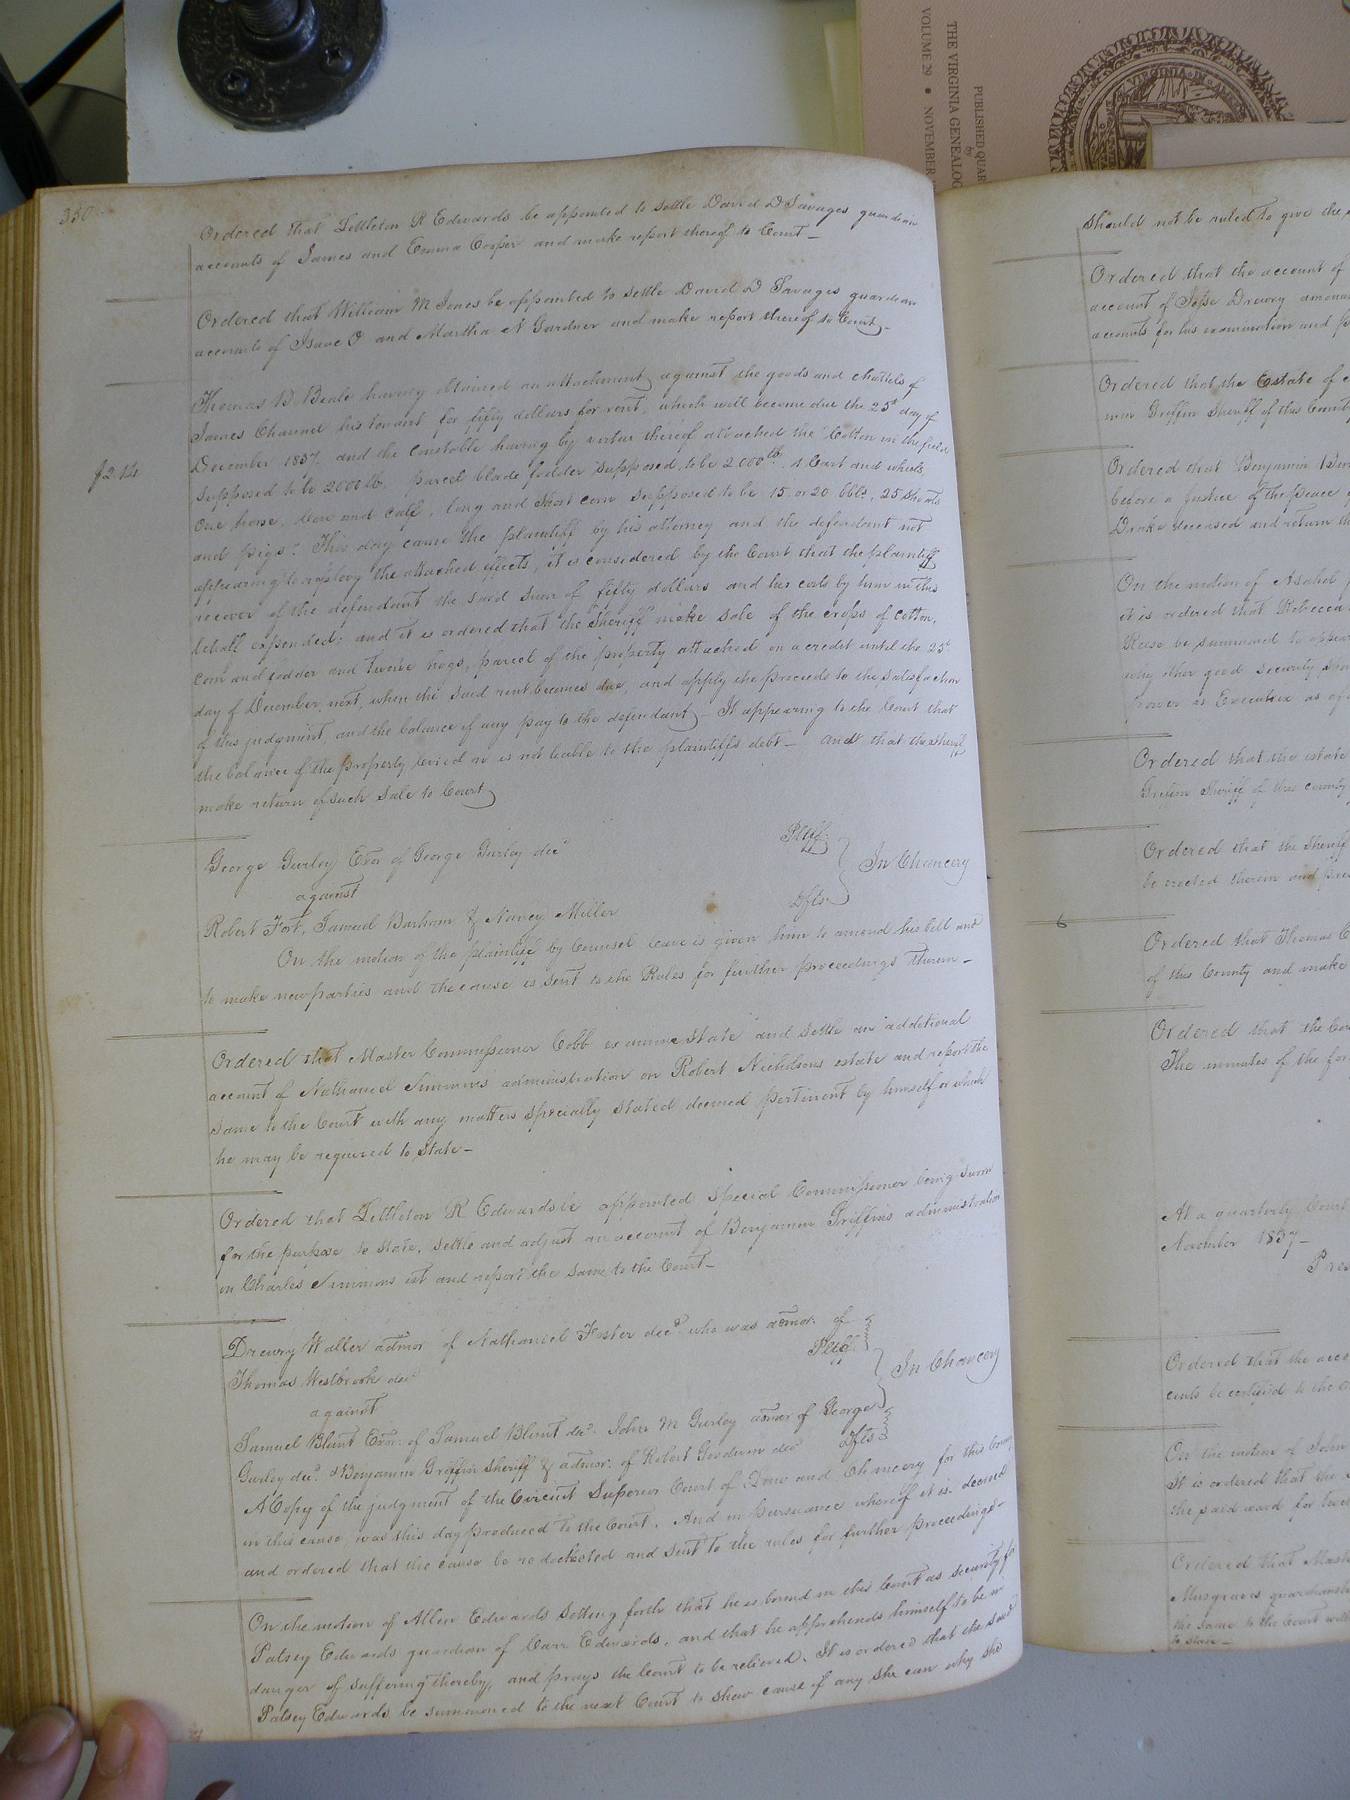 THE VIRGINIA GENEALOG
VOLUME 29 • NOVEMBER
PUBLISHED QUAR
by
VIRGINIA
350
Ordered that Littleton R Edwards be appointed to settle David D Savages guardian
accounts of James and Emma Cooper and make report thereof to Court _
Ordered that William M Jones be appointed to settle David D Savages guardian
accounts of Isaac O and Martha A Gardner and make report thereof to Court _
Thomas D Beale having obtained an attachment against the goods and chattels of
James Channel his tenant for fifty dollars for rent, which will become due the 25th day of
December 1837. and the constable having by virtue thereof attached the Cotton in the field
$2.14
supposed to be 2000 lb. parcel blade fodder supposed to be 2000lb. 1 Cart and wheels
One horse, Cow and Calf, long and short corn supposed to be 15 or 20 bbls, 25 shoats
and pigs: This day came the plaintiff by his attorney and the defendant not
appearing to replevy the attached effects, it is considered by the Court that the plaintiff
recover of the defendant the said sum of fifty dollars and his costs by him in this
behalf expended; and it is ordered that the Sheriff make sale of the crops of Cotton,
Corn and fodder and twelve hogs, parcel of the property attached on a credit until the 25th
day of December next, when the said rent becomes due, and apply the proceeds to the satisfaction
of this judgment, and the balance if any pay to the defendant _ It appearing to the Court that
the balance of the property levied on is not liable to the plaintiffs debt _ And that the Sheriff
make return of such sale to Court
George Gurley Exor of George Gurley decd Pltff
against In Chancery
Robert Fort, Samuel Barham & Nancy Miller Dfts
On the motion of the plaintiff by Counsel leave is given him to amend his bill and
to make new parties and the cause is sent to the Rules for further proceedings therein _
Ordered that Master Commissioner Cobb examine state and settle an additional
account of Nathaniel Simmons administration on Robert Nicholsons estate and report the
same to the Court with any matters specially stated deemed pertinent by himself or which
he may be required to state _
Ordered that Littleton R Edwards be appointed Special Commissioner being sworn
for the purpose to state, settle and adjust an account of Benjamin Griffins administration
on Charles Simmons est and report the same to the Court _
Drewry Waller admor of Nathaniel Foster decd who was admor. of
Thomas Westbrook decd Pltff
against In Chancery
Samuel Blunt Exor. of Samuel Blunt decd. John M Gurley admor of George
Gurley decd. & Benjamin Griffin Sheriff & admor. of Robert Goodwin decd Dfts
A Copy of the judgment of the Circuit Superior Court of Law and Chancery for this County
in this cause was this day produced to the Court. And in pursuance whereof it is decreed
and ordered that the cause be redocketed and sent to the rules for further proceedings _
On the motion of Allen Edwards setting forth that he is bound in this Court as security for
Patsey Edwards guardian of Carr Edwards, and that he apprehends himself to be in
danger of suffering thereby, and prays the Court to be relieved. It is ordered that the said
Patsey Edwards be summoned to the next Court to shew cause if any she can why she
should not be ruled to give the
Ordered that the account of
account of Jesse Drewry
accounts for his examination and
Ordered that the Estate of
min Griffin Sheriff of this County
Ordered that Benjamin
before a Justice of the peace
Drake deceased and return
On the motion of Asahel
it is ordered that Rebecca
Reese be summoned to appear
why other good security
power as Executrix as
Ordered that the estate
Griffin Sheriff of this county
Ordered that the Sheriff
be erected therein and
6
Ordered that Thomas
of this County and make
Ordered that the
The minutes of the
At a quarterly Court
November 1837 _
Ordered that the
be certified to the
On the motion of John
It is ordered that the
the said ward for
Ordered that
Musgraves guardianship
the same to the Court with
to state _